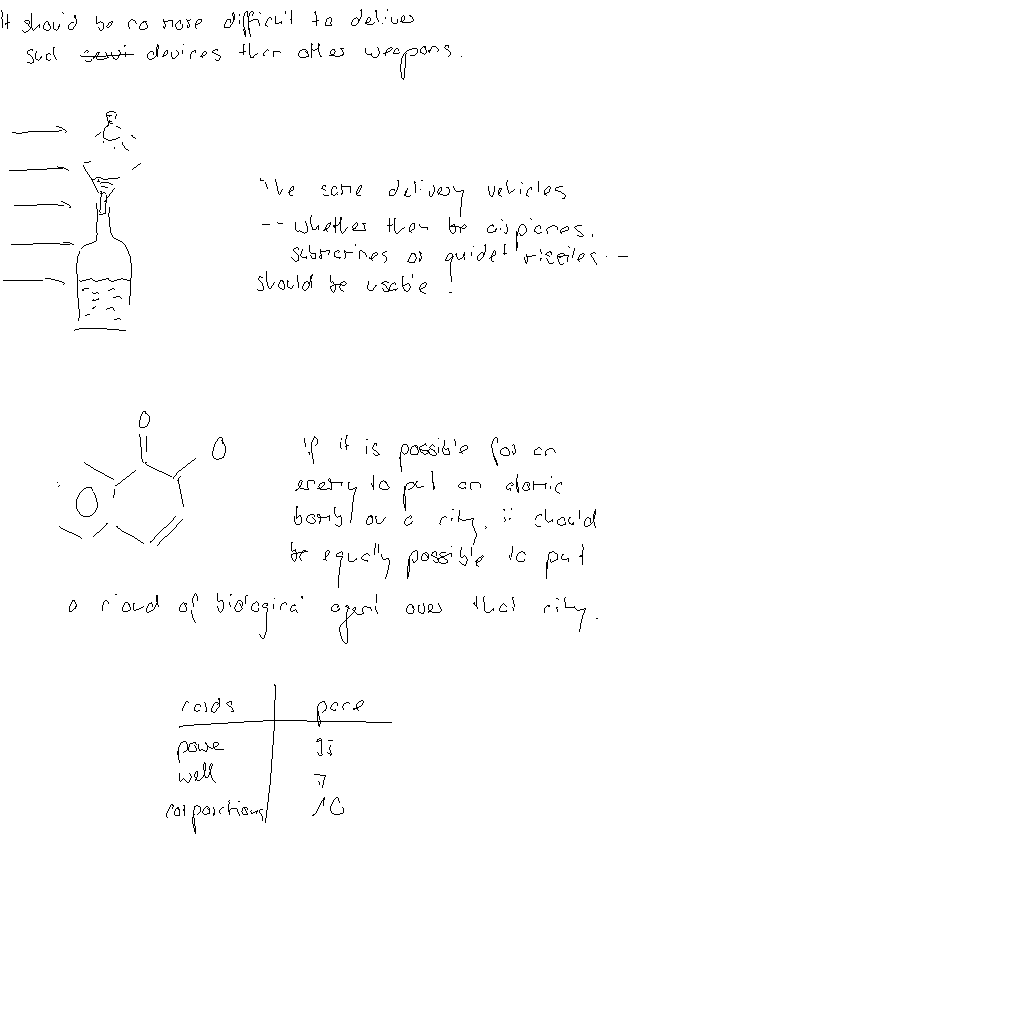 It should be no more difficult to deliver
such devices than other weapons.
The same delivery vehicles
-- whether they be airplanes,
submarines or guided missiles --
should be usable.
O
O
O
If it is possible for an
enemy to put an atomic
bomb on a city, it should
be equally possible to put
a cloud of biological agent over that city.
pare
powe
well 7
corporations 10